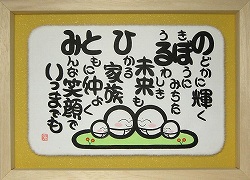 のどかに輝く
きぼうにみちた
うるわしき
未来も
ひかる
家族
ともに仲よく
みんな笑顔で
いつまでも